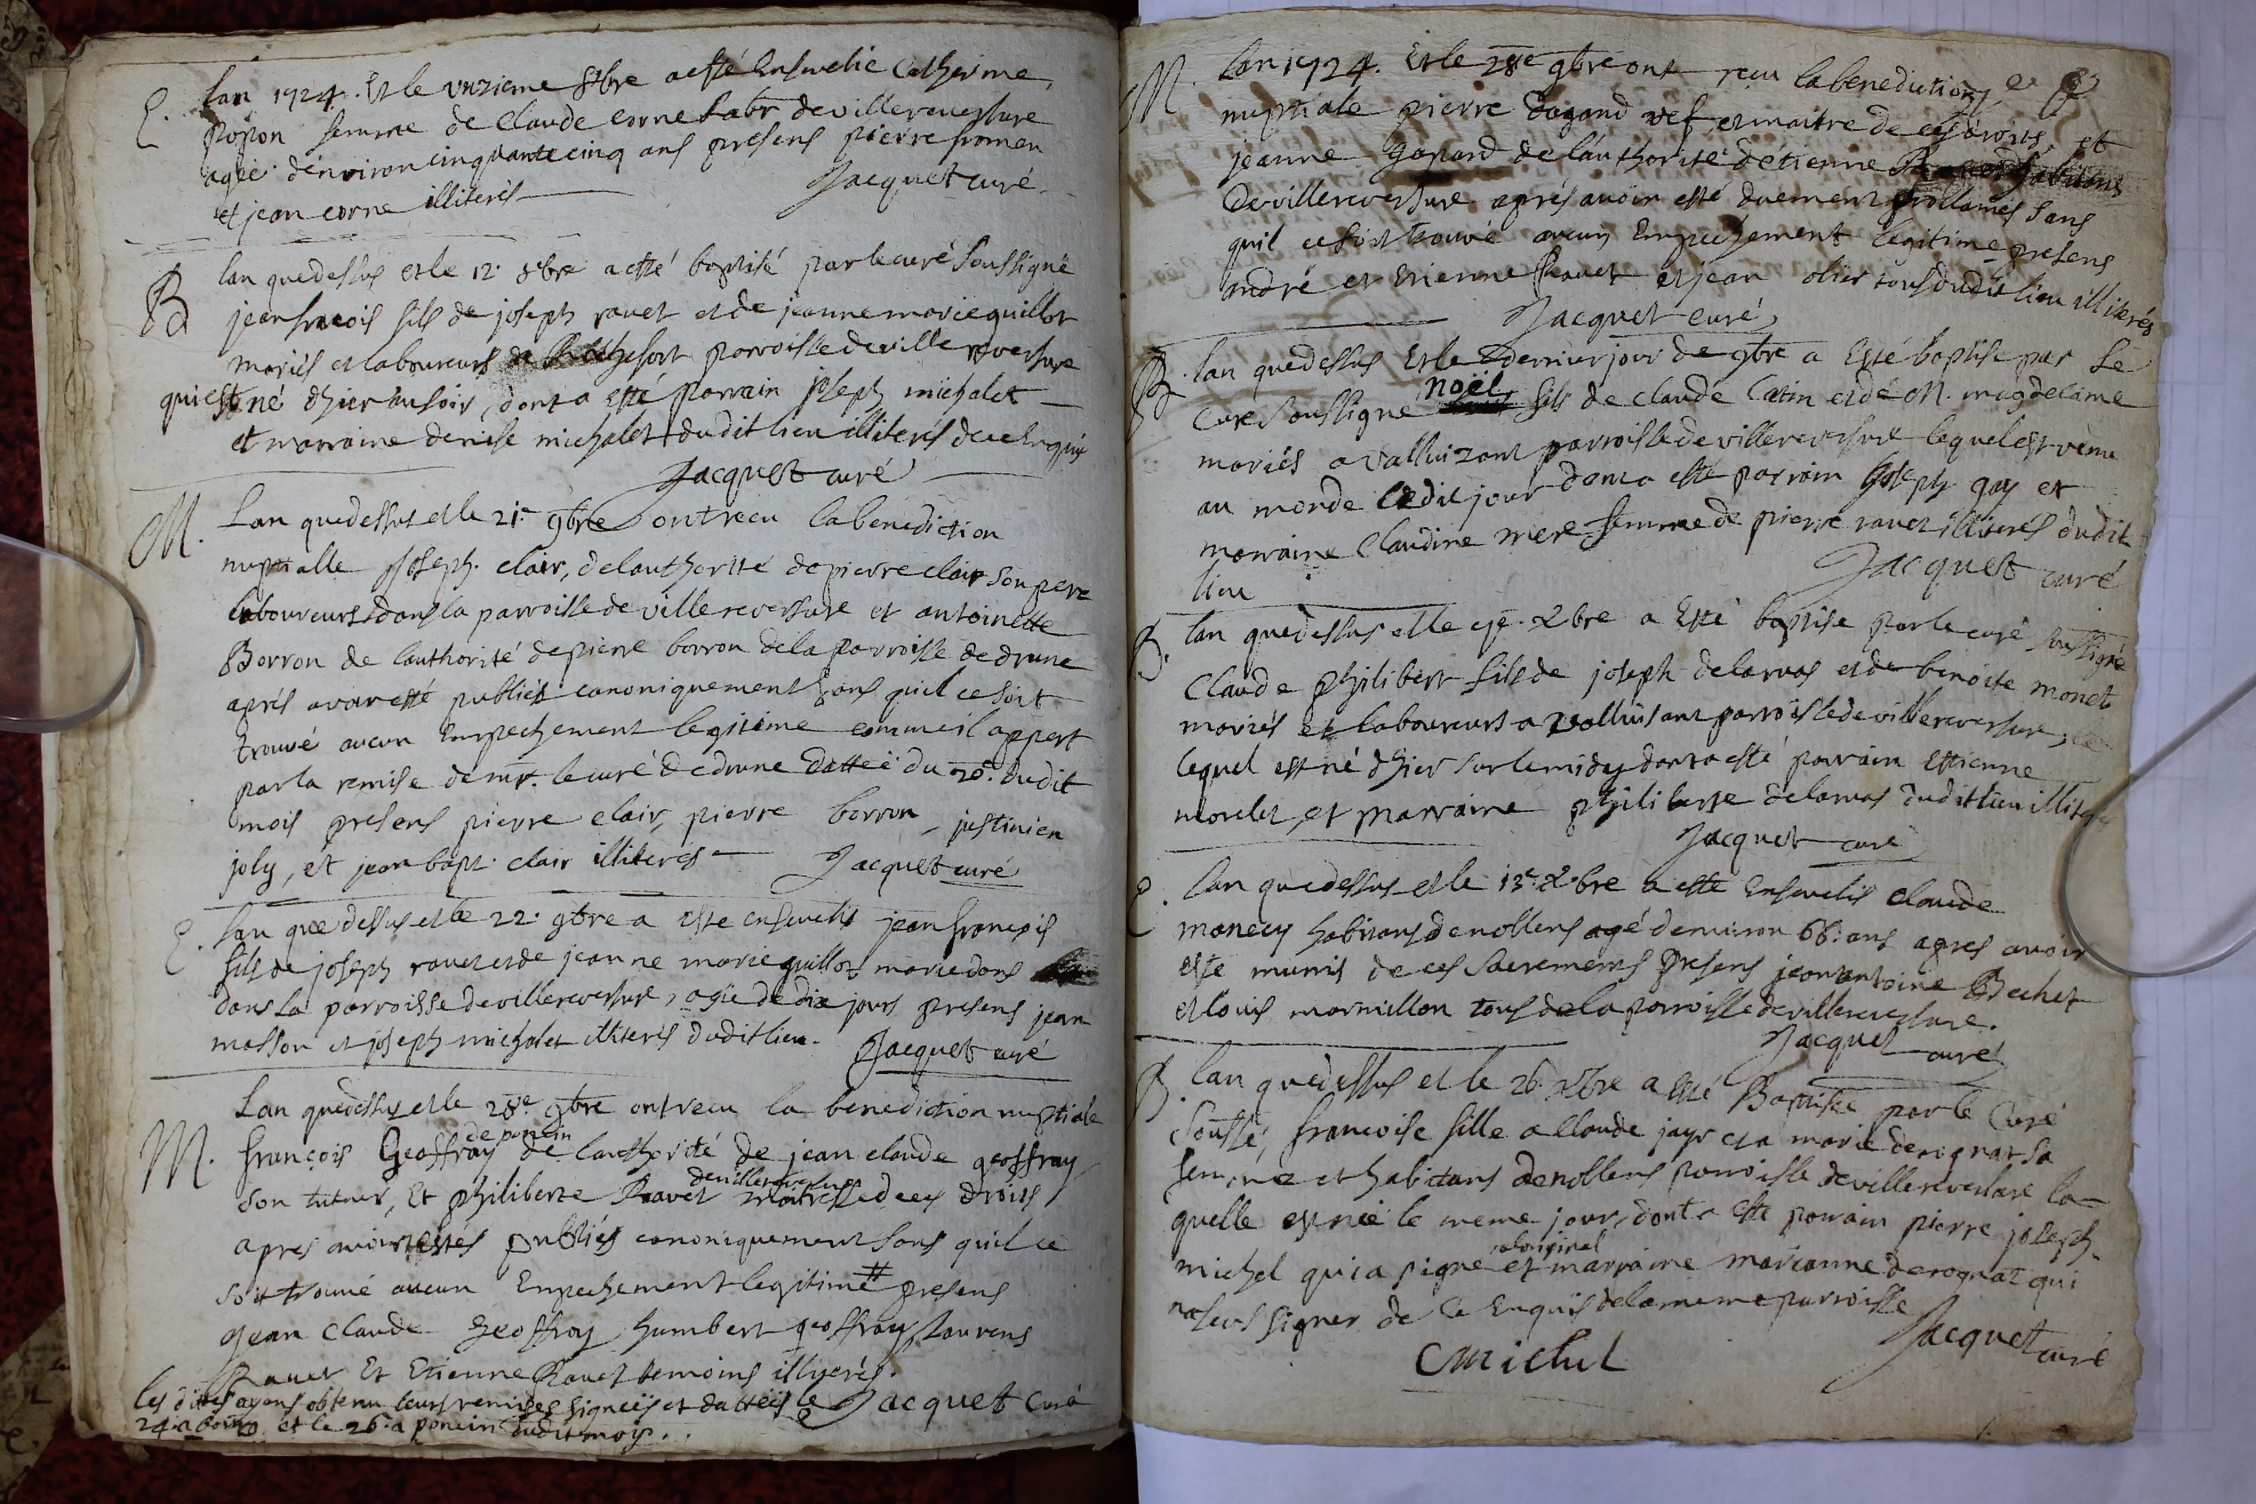 E. Lan 1724. Et le unzieme 8bre a esté Ensevelie Catherine
popon femme de Claude corne labr de villereversure
agée d'environ cinquante cinq ans presens pierre fromen
et jean corne illiterés Jacquet curé
B Lan que dessus et le 12. 8bre a esté baptisé par le curé soussigné
jean fracois fils de joseph ravet et de jeanne marie guillot
mariés et laboureurs de Rochefort parroisse de villereversure
qui est né d'hier au soir, dont a esté parrain joseph michalet
et marraine denise michalet dudit lieu illiterés de ce Enquis
Jacquet curé
M. Lan que dessus et le 21e. 9bre ont receu la benediction
nuptialle Joseph clair, de lauthorité de pierre clair son pere
laboureurs dans la parroisse de villereversure et antoinette
Borron de lauthorité de pierre borron de la parroisse de drune
aprés avoir esté publiés canoniquement sans quil ce soit
trouvé aucun Empechement legitime comme il appert
par la remise de mr. le curé de drune dattée du 20e. dudit
mois presens pierre clair, pierre borron, justinien
joly, et jean bapt. clair illiterés Jacquet curé
E. Lan que dessus et le 22. 9bre a este ensevelis jean françois
fils de joseph ravet et de jeanne marie guillot marie dans
dans la parroisse de villereversure, agée de dix jours presens jean
masson et joseph michalet illiterés dudit lieu. Jacquet curé
Lan que dessus et le 28e. 9bre ont receu la benediction nuptiale
de poncin
M. françois Geoffray de lauthorité de jean claude geoffray
de villereversure
son tuteur, Et philiberte Ravet maitresse de ces droits
apres avoir estés publiés canoniquement sans quil ce
soit trouvé aucun Empechement legitime # presens
jean Claude Geoffray humbert geoffray laurens
Ravet Et Etienne Ravet temoins illiterés.
les dittes ayans obtenu leurs remises signeés et datteés le Jacquet Curé
24. a et le 26. a poncin dudit mois..
M. Lan 1724. Et le 28e 9bre ont reçu la benediction
nuptiale pierre dagand vef et maitre de ces droits, et
jeanne Gonard de lauthorité d'étienne habitans
de villereversure aprés avoir esté duement proclamés sans
quil ce soit trouvé aucun Empechement legitime presens
andré et Etienne Ravet et jean olier tous dudit lieu illiterés
Jacquet curé
B. Lan que dessus Et le dernier jour de 9bre a Esté baptisé par le
noël
Curé soussigné fils de claude Catin et de M. magdelaine
mariés a valluizant parroisse de villereversure lequel est venu
au monde ledit jour dont a esté parrain Joseph gay et
marraine Claudine mere femme de pierre ravet illiterés dudit
lieu Jacquet curé
B. Lan que dessus et le 9e. Xbre a Esté baptise par le curé soussigné
Claude philibert fils de joseph delarvas et de benoite monet
mariés et laboureurs a valluisant parroisse de villereversure,
lequel est né d'hier sur le midy dont a esté parrain Ettienne
morelet, et marraine philiberte delarvas dudit lieu illiterés
Jacquet curé
E. Lan que dessus et le 13e. Xbre a esté Ensevelis claude
monecy habitans de nollens agé denviron 66. ans apres avoir
este munis de ces sacremens presens jean antoine Bechet
et louis marmillon tous de la parroisse de villereversure.
Jacquet curé
B. Lan que dessus et le 26. Xbre a esté Baptisée par le Curé
soussé, francoise fille a Claude jayr et a marie derognat sa
femme et habitans de nollens parroisse de villereversure la-
quelle est née le meme jour, dont a esté parrain pierre joseph
a loriginal
michel qui a signé et marraine marianne derognat qui
na sceu signer de ce Enquis de la meme parroisse
Jacquet curé
Cmichel